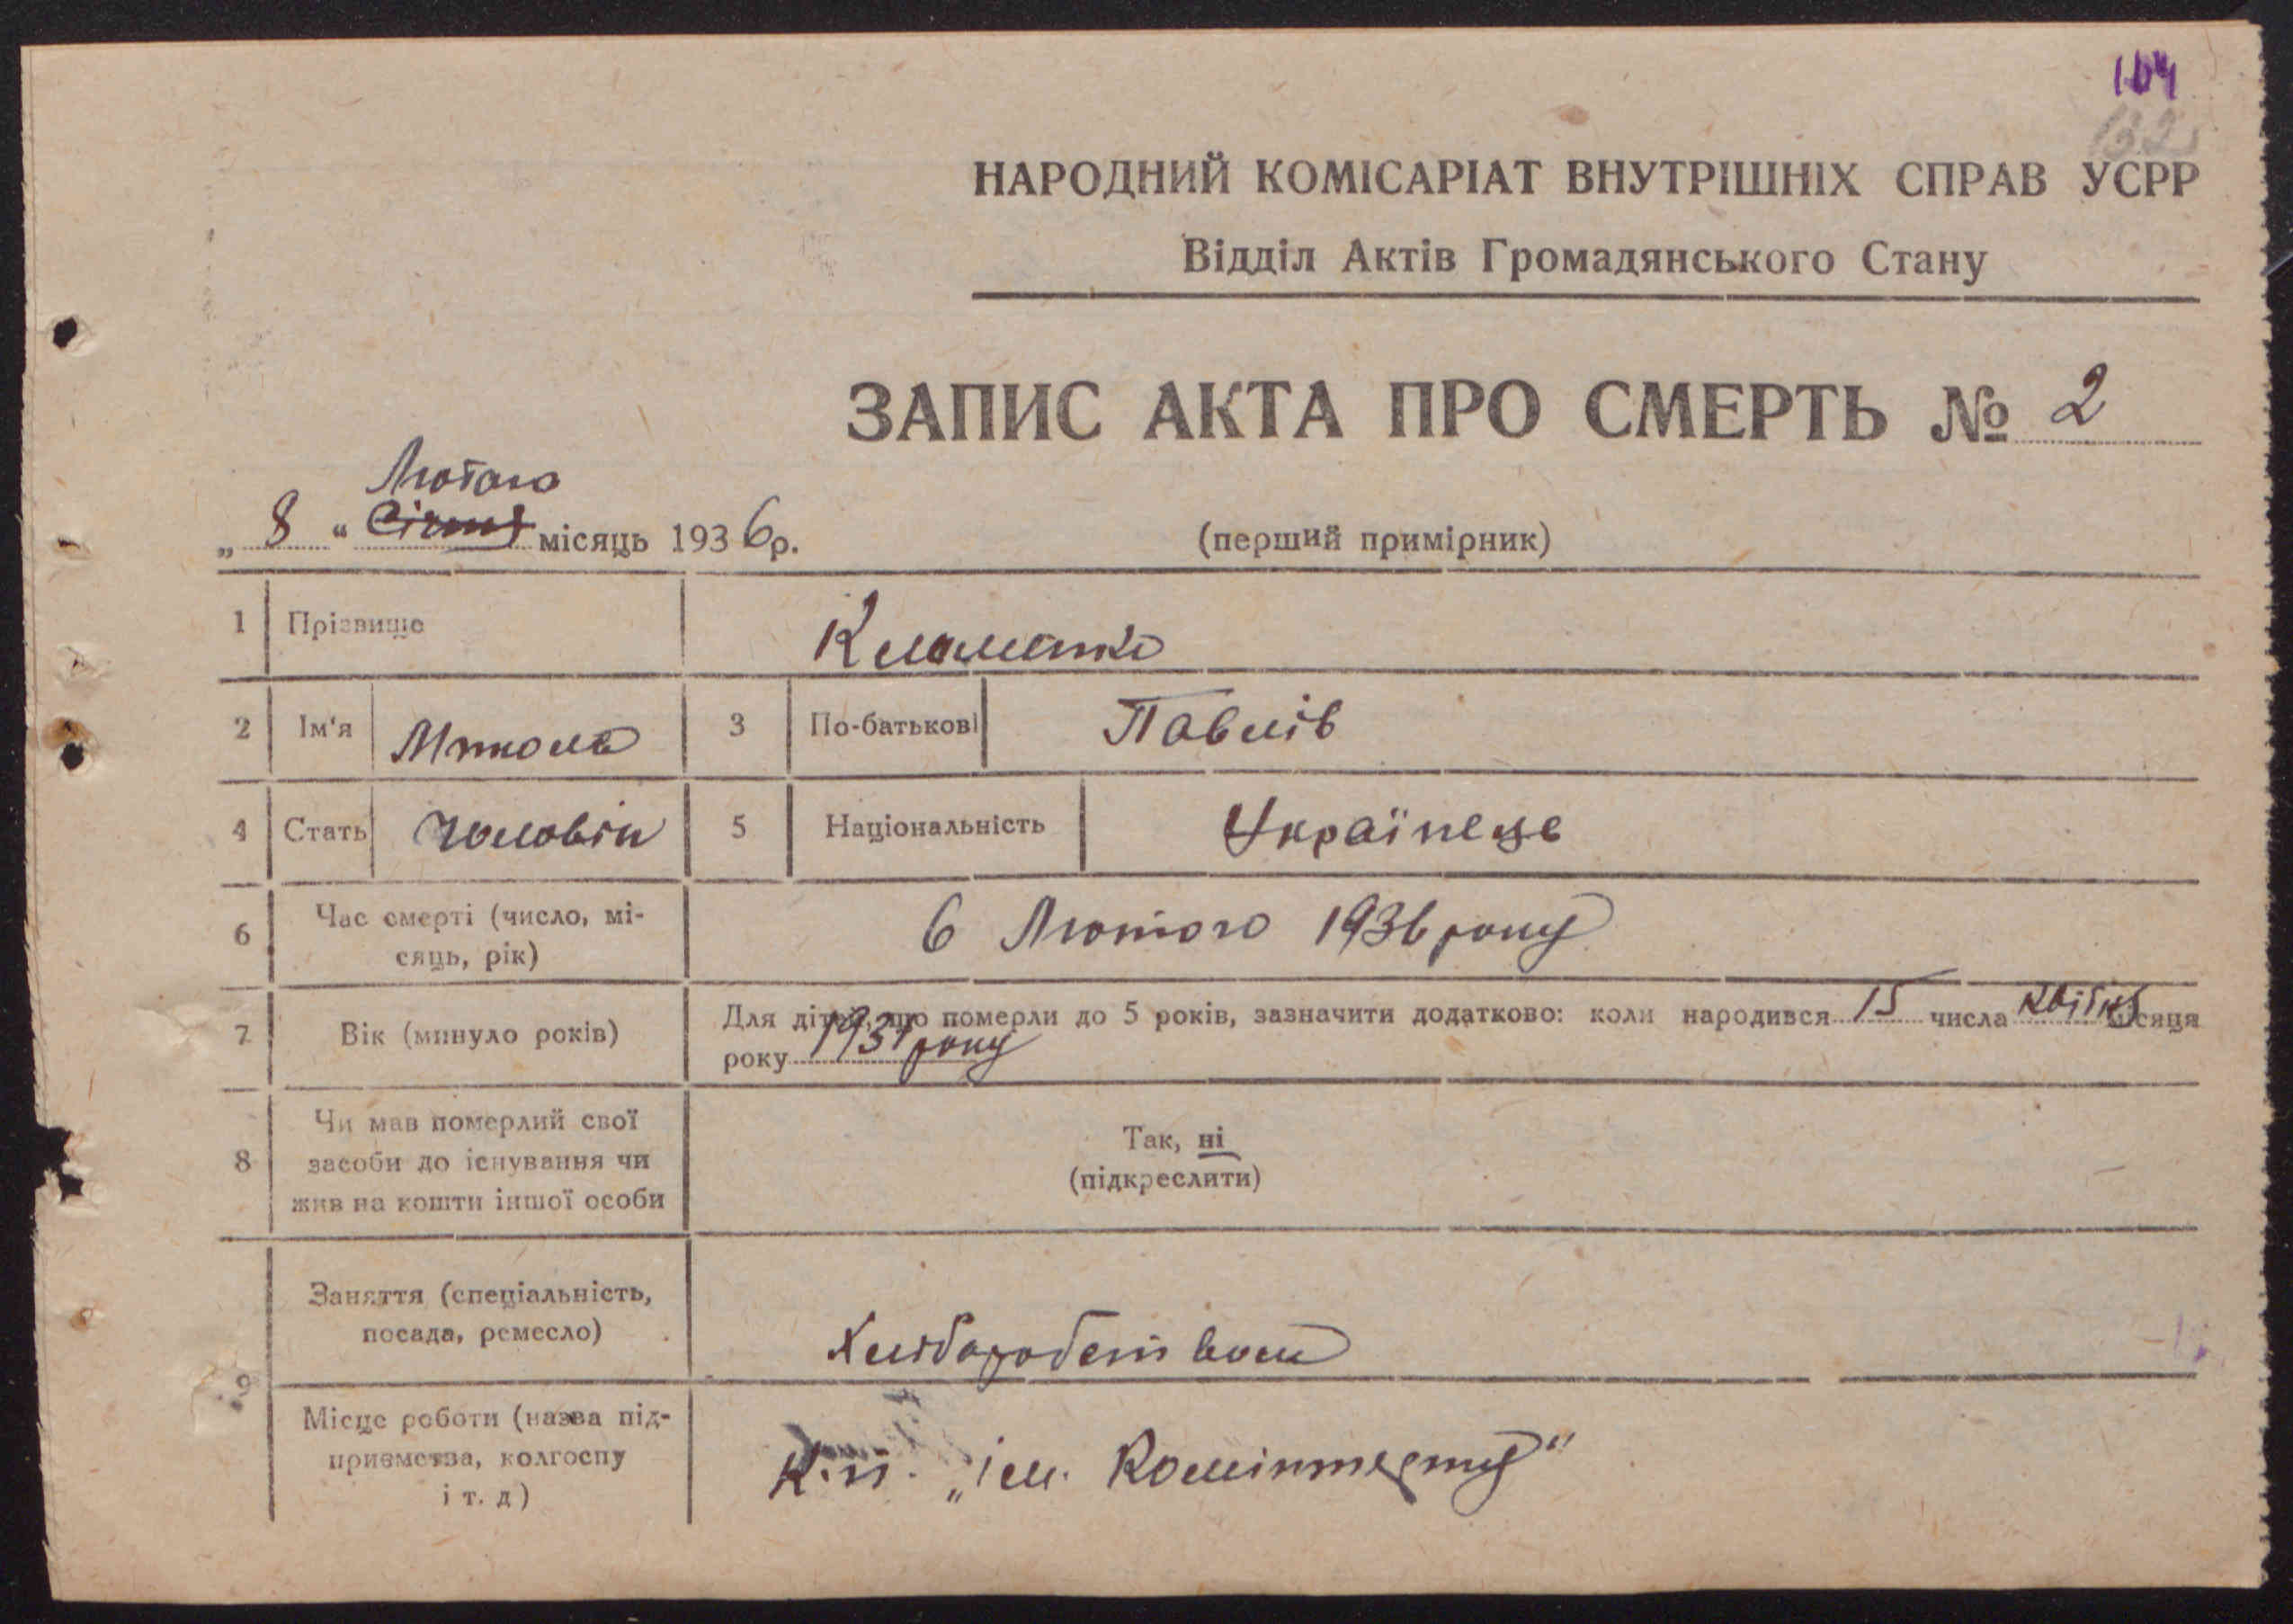 164
132
НАРОДНИЙ КОМІСАРІАТ ВНУТРІШНІХ СПРАВ УСРР
Відділ Актів Громадянського Стану
ЗАПИС АКТА ПРО СМЕРТЬ № 2
Лютого
„ 8 “ Січня місяць 1936 р.
(перший примірник)
1 Прізвище Клименко
2 Ім'я Микола 3 По-батькові Павлів
4 Стать Чоловік 5 Національність Українець
6 Час смерті (число, мі-
сяць, рік) 6 Лютого 1936 року
7 Вік (минуло років) Для дітей, що померли до 5 років, зазначити додатково: коли народився 15 числа квітня місяця
року 1931 року
8 Чи мав померлий свої
засоби до існування чи
жив на кошти іншої особи
Так, ні
(підкреслити)
9 Заняття (спеціальність,
посада, ремесло) Хліборобством
Місце роботи (назва під-
приємства, колгоспу
і т. д)
К.п. „ім. Комінтерну“